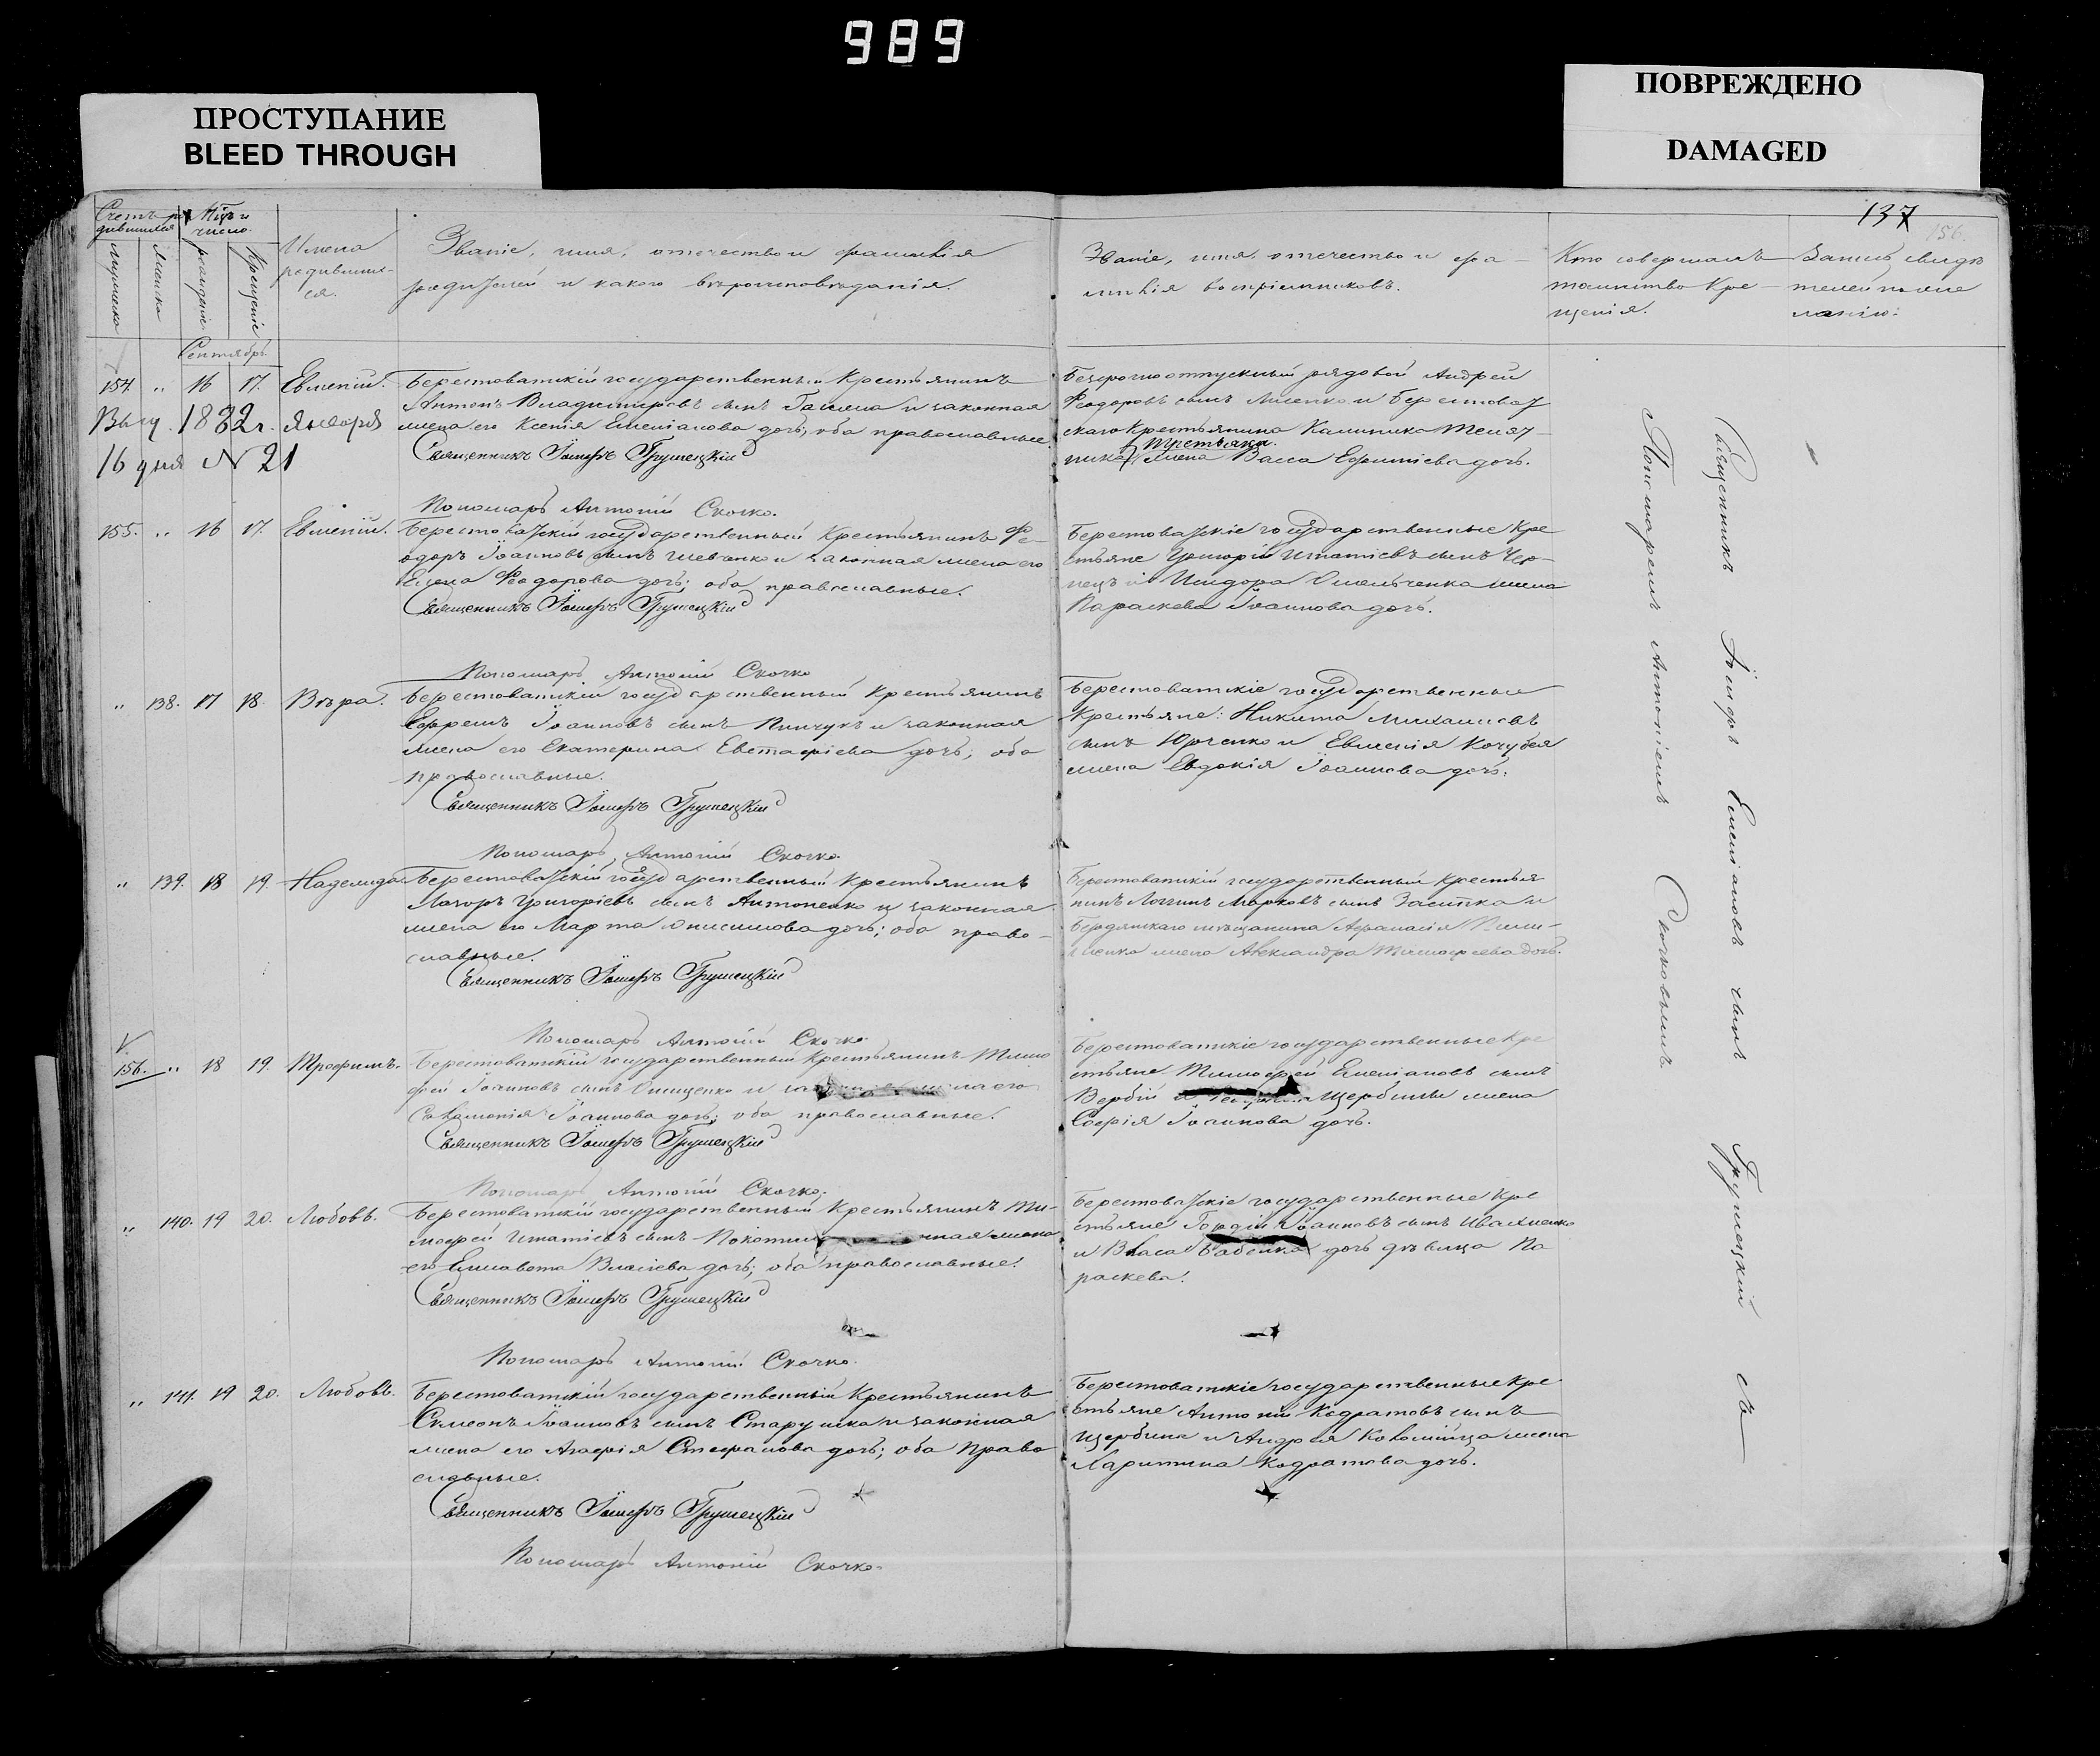 989
ПРОСТУПАНИЕ
BLEED THROUGH
ПОВРЕЖДЕНО
DAMAGED
137
156.
Счетъ ро
дившихся
Мѣс. и
число.
мужеска
женска
рожденіе
крещеніе
Имена
родивших-
ся.
Званіе, имя, отечество и фамилія
родителей и какого вѣроисповѣданія.
Званіе, имя, отечество и фа-
милія воспріемниковъ.
Кто совершалъ
таинство Кре-
щенія.
телей по же
ланію:
Сентябрь.
154. „ 16 17. Евменій.
Берестоватскій государственный Крестьянинъ
Антонъ Владиміровъ сынъ и законная
жена его Ксенія Емеліанова дочь; оба православные.
Священникъ Іосифъ Грушецкій
Пономарь Антоній Скочко.
Выд. 1882 г. Января
16 дня № 21
Безсрочноотпускный рядовой Андрей
Феодоровъ сынъ Лысенко и Берестоват
скаго Крестьянина Калиника
жена Васса Ефиміева дочь.
155. „ 16 17. Евменій.
Берестоватскій государственный Крестьянинъ Фе-
одоръ Іоанновъ сынъ Шевченко и законная жена его
Елена Феодорова дочь; оба православные.
Священникъ Іосифъ Грушецкій
Пономарь Антоній Скочко
Берестоватскіе государственные Кре
стьяне Григорій Игнатіевъ сынъ Чер-
нецъ и Исидора Омельченка жена
Параскева Іоаннова дочь.
„ 138. 17 18. Вѣра.
Берестоватскій государственный Крестьянинъ
Ефремъ Іоанновъ сынъ Пинчукъ и законная
жена его Екатерина Евстафіева дочь; оба
православные.
Священникъ Іосифъ Грушецкій
Пономарь Антоній Скочко.
Берестоватскіе государственные
Крестьяне: Никита Михаиловъ
сынъ Юрченко и Евменія Кочубея
жена Евдокія Іоаннова дочь.
„ 139. 18 19. Надежда
Берестоватскій государственный Крестьянинъ
Лазорь Григоріевъ сынъ Антоненко и законная
жена его Марта Онисимова дочь; оба право-
славные.
Священникъ Іосифъ Грушецкій
Пономарь Антоній Скочко
Берестоватскій государственный Крестья
нинъ Логгинъ Марковъ сынъ Засипка и
Бердянскаго мѣщанина Афанасія
жена Александра Тимофеева дочь.
156. „ 18 19. Трофимъ.
Берестоватскій государственный Крестьянинъ Тимо
фей Іоанновъ сынъ Онищенко и
Соломонія Іоаннова дочь; оба православные.
Священникъ Іосифъ Грушецкій
Пономарь Антоній Скочко.
Берестоватскіе государственные Кре
стьяне Тимофей Емеліановъ сынъ
Вербій и Щербины жена
Софія Іоаннова дочь.
„ 140. 19 20. Любовь.
Берестоватскій государственный Крестьянинъ Ти-
мофей Игнатіевъ сынъ жена
его Елисавета Власіева дочь; оба православные.
Священникъ Іосифъ Грушецкій
Пономарь Антоній Скочко.
Берестоватскіе государственные Кре
стьяне Гордій Іоанновъ сынъ Ивахненко
и Власа Бабенка дочь дѣвица Па
раскева.
„ 141. 19 20. Любовь.
Берестоватскій государственный Крестьянинъ
Симеонъ Іоанновъ сынъ Старушко и законная
жена его Агафія Стефанова дочь; оба право
славные.
Священникъ Іосифъ Грушецкій
Пономарь Антоній Скочко.
Берестоватскіе государственные Кре
стьяне Антоній Кодратовъ сынъ
Щербина и Андрея Коломійца жена
Харитина Кодратова дочь.
Священникъ Іосифъ Емеліановъ сынъ Грушецкій съ
Пономаремъ Антоніемъ Скочковымъ